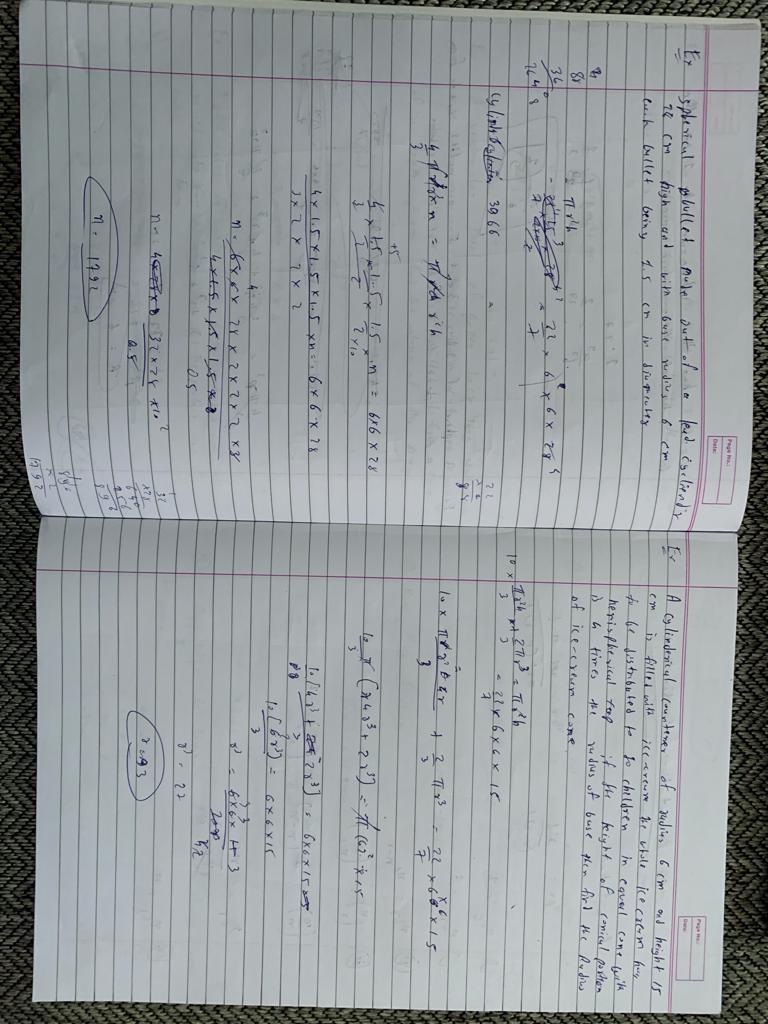 Page No.:
Date:
Ex spherical bullet made out of a lead cyliendir
28 cm high and with base radius 6 cm
each bullet being 1.5 cm in diameter
πr²h
22/7 × 6 × 6 × 28
3966
4/3 πr³ × n = πr²h
4/3 × 1.5/2 × 1.5/2 × 1.5/2 × n = 6×6×28
4×1.5×1.5×1.5×n = 6×6×28
3×2×2×2
n = 6×6×28×2×2×2×3
4×1.5×1.5×1.5
0.5
n = 32×28×10
0.5
n = 1792
Page No.:
Date:
Ex A cylinderical countener of radius 6 cm and height 15
cm is filled with ice-cream the whole ice cream has
to be distributed to 10 children in equal cone with
hemispherical top if the height of conical portion
is 4 times the radius of base then find the Radius
of ice-cream cone
10 × πr²h/3 + 2πr³/3 = πr²h
= 22/7 × 6 × 6 × 15
+ 2/3 πr³ = 22/7 × 6 × 6 × 15
10/3 π (4r³ + 2r³) = π (6)² × 15
10 [4r³ + 2r³] = 6×6×15
3
10 [6r³] = 6×6×15
3
r³ = 27
r = 3